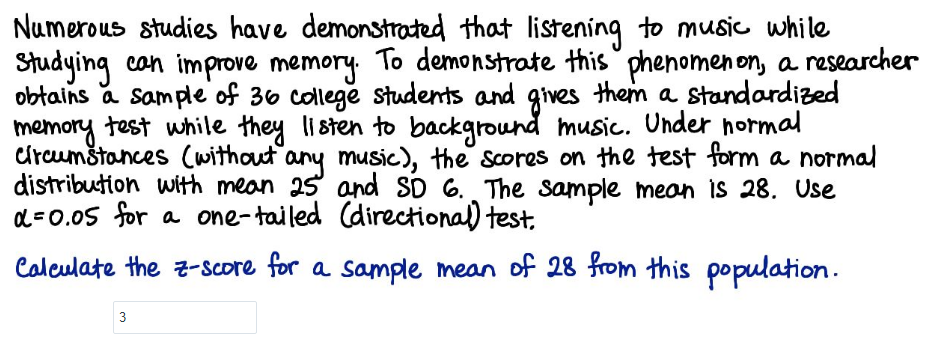 Numerous studies have demonstrated that listening to music while
studying can improve memory. To demonstrate this phenomenon, a researcher
obtains a sample of 36 college students and gives them a standardized
memory test while they listen to background music. Under normal
circumstances (without any music), the scores on the test form a normal
distribution with mean 25 and SD 6. The sample mean is 28. Use
α=0.05 for a one-tailed (directional) test.
Calculate the z-score for a sample mean of 28 from this population.
3